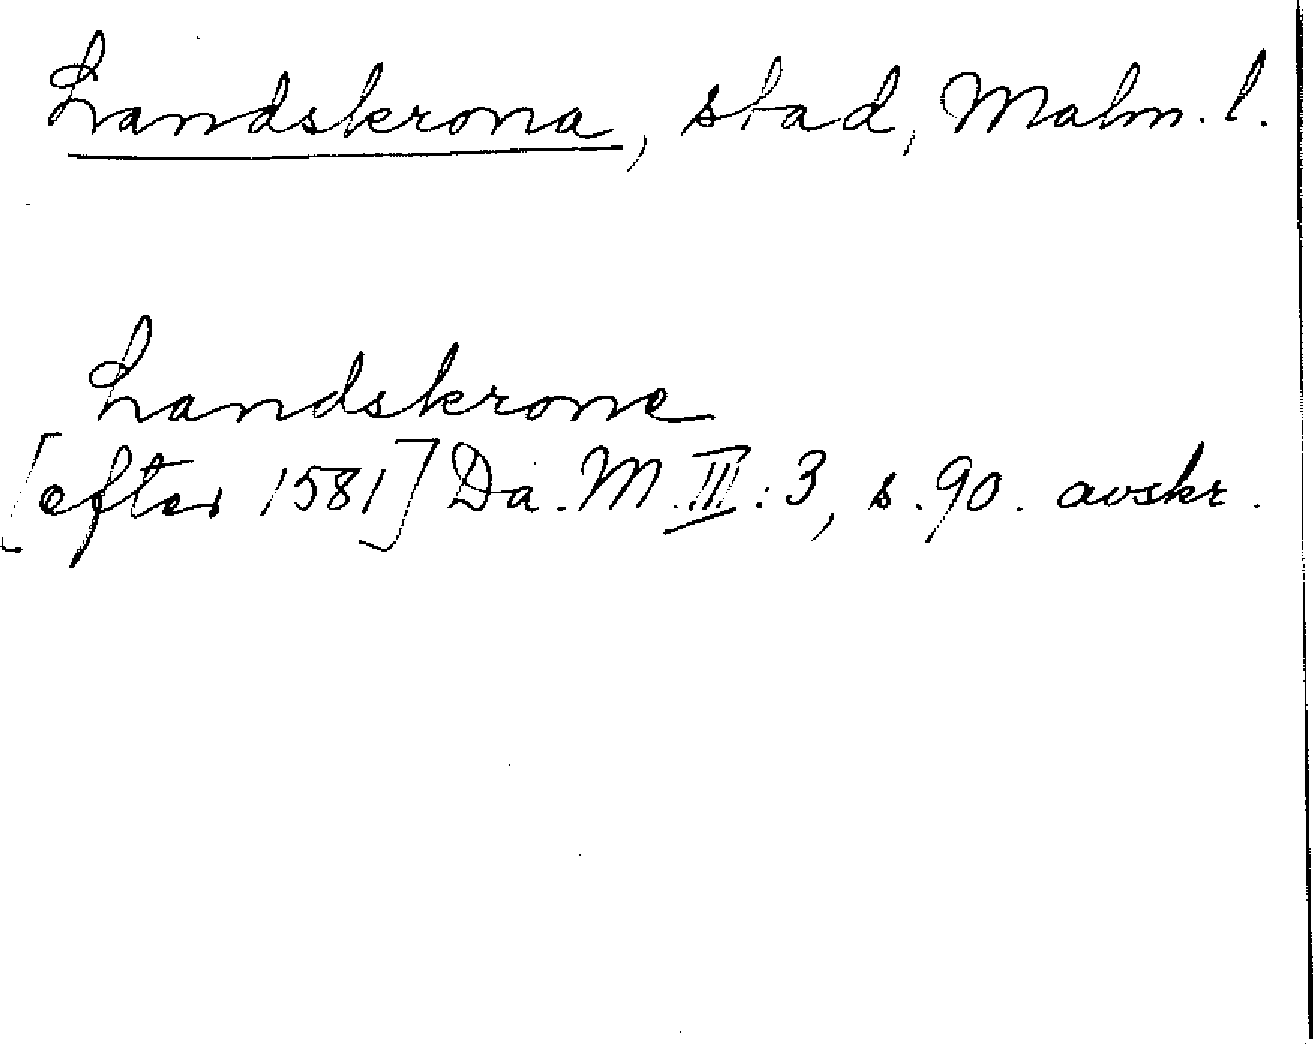 Landskrona, stad, Malm. l.
Landskrone
[efter 1581] Da. M. III: 3, s. 90. avskr.